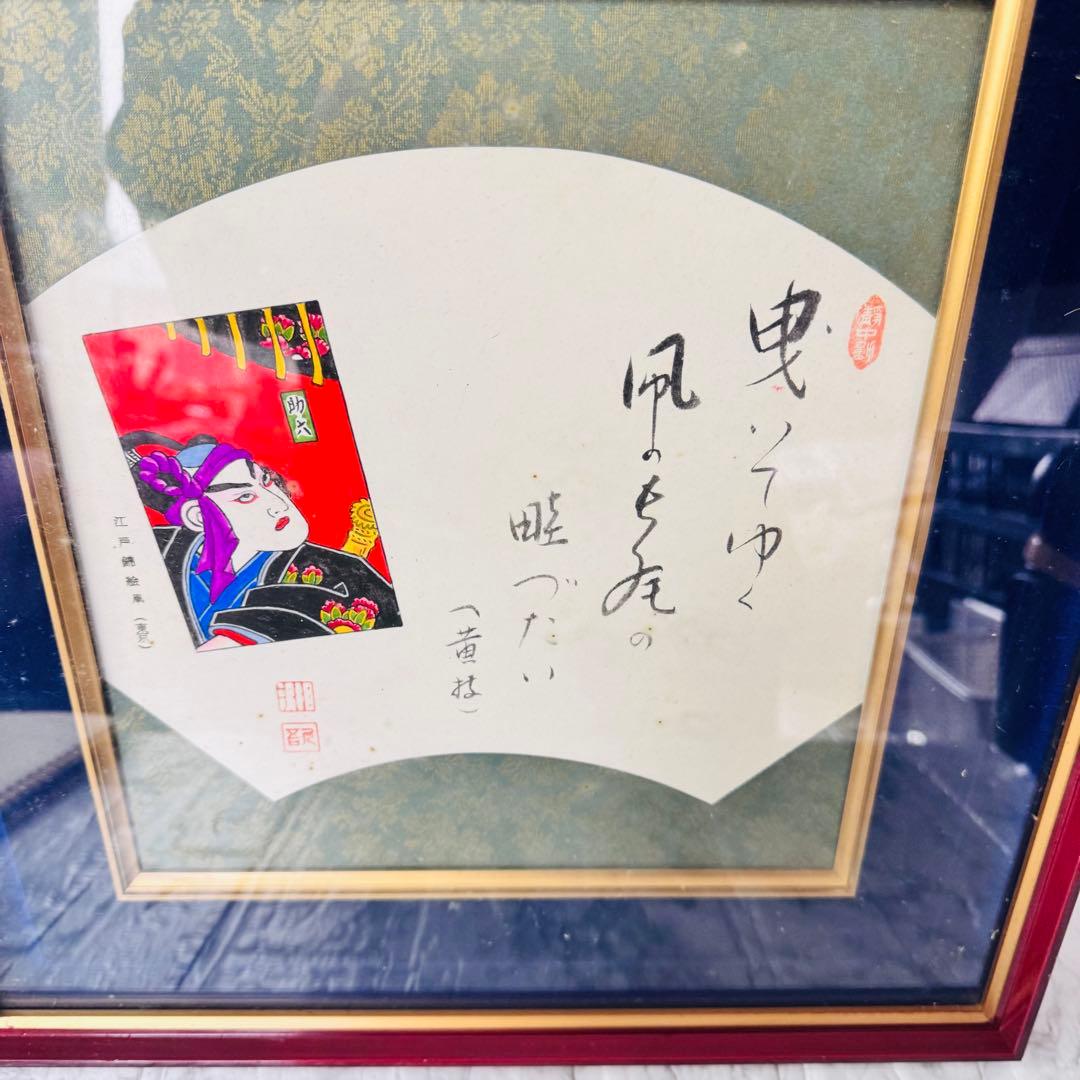 曳いてゆく
凧の長尾の
畦づたい
（黄枝）
助六
江戸錦絵凧（東京）